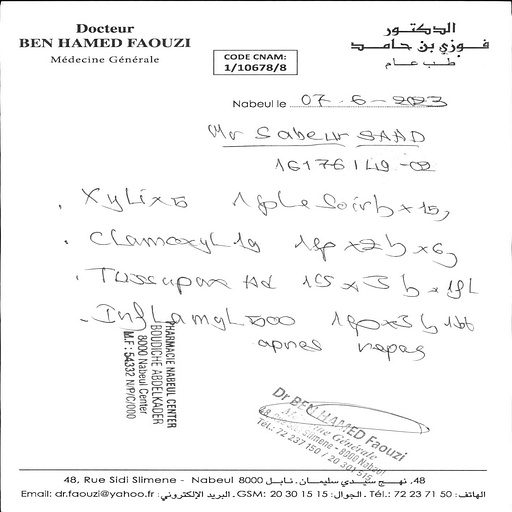 Docteur
BEN HAMED FAOUZI
Médecine Générale
الدكتور
فوزي بن حامد
طب عام
CODE CNAM:
1/10678/8
Nabeul le 07-6-2023
Mr Sabeur SAAD
16176149-02
. Xylix 5 1cp le soir x 15j
. Clamoxyl 1g 1cp x 2 x 6j
. Tussapax Ad 1cs x 3 x 1fl
. Inflamyl 500 1cp x 3
apres repas
PHARMACIE NABEUL CENTER
BOUDICHE ABDELKADER
8000 Nabeul Center
M.F : 54332 N/P/C/000
Dr BEN HAMED Faouzi
Médecine Générale
48, Rue Sidi Slimene - 8000 Nabeul
Tél.: 72 237 150 / 20 301 515
48, Rue Sidi Slimene - Nabeul 8000 نهج سيدي سليمان. نابل .48
Email: dr.faouzi@yahoo.fr : البريد الإلكتروني .GSM: 20 30 15 15 : الجوال. Tél.: 72 23 71 50 : الهاتف